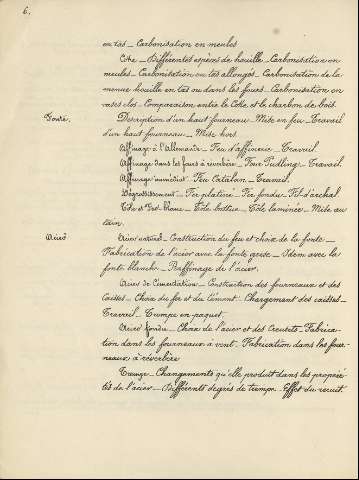 6.
en tas _ Carbonisation en meules
Coke _ Différentes espèces de houille _ Carbonisation en
meules _ Carbonisation en tas allongés _ Carbonisation de la
menue houille en tas ou dans les fours _ Carbonisation en
vases clos _ Comparaison entre le Coke et le charbon de bois.
Description d'un haut fourneau _ Mise en feu _ Travail
d'un haut fourneau _ Mise hors.
Affinage à l'Allemande _ Feu d'affinerie _ Travail.
Affinage dans les fours à réverbère _ Four Pudling _ Travail.
Affinage immédiat _ Feu Catalan _ Travail.
Dégrossissement _ Fer platiné _ Fer fendu _ Fil d'archal
Tôle et Fer-blanc _ Tôle battue _ Tôle laminée _ Mise au
tain.
Acier
Acier naturel _ Construction du feu et choix de la fonte _
Fabrication de l'acier avec la fonte grise _ Idem avec la
fonte blanche _ Raffinage de l'acier.
Acier de Cémentation _ Construction des fourneaux et des
Caisses _ Choix du fer et du Cément _ Chargement des caisses _
Travail _ Trempe en paquet.
Acier fondu _ Choix de l'acier et des Creusets _ Fabrica-
tion dans les fourneaux à vent _ Fabrication dans les four-
neaux à réverbère
Trempe _ Changements qu'elle produit dans les proprié-
tés de l'acier _ Différents degrés de trempe _ Effet du recuit.